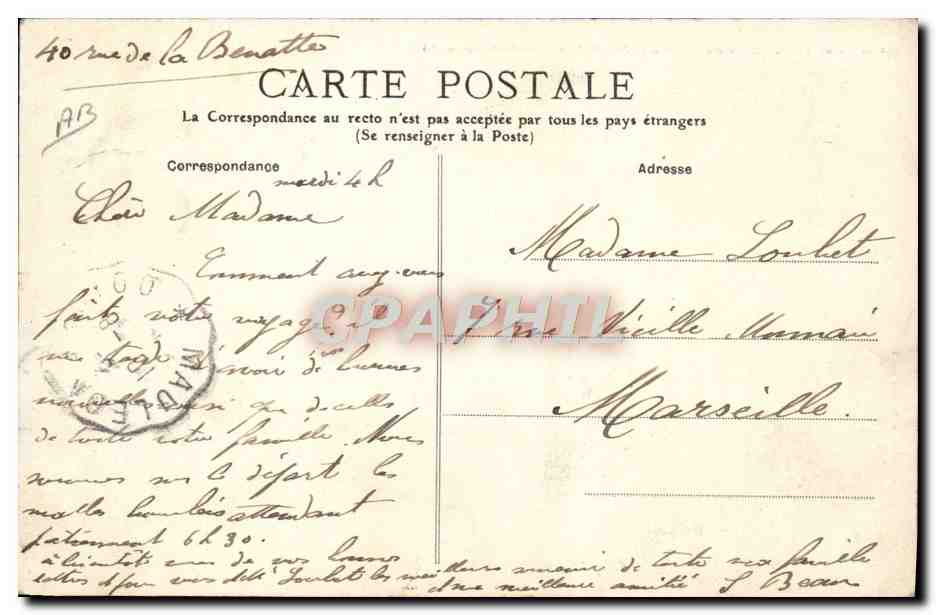 40 rue de la Benatte
AB
CARTE POSTALE
La Correspondance au recto n'est pas acceptée par tous les pays étrangers
(Se renseigner à la Poste)
Correspondance
Adresse
mardi 4 h
Chère Madame
Comment avez-vous
fait votre voyage? il
me tarde d'avoir de bonnes
nouvelles ainsi que de celles
de toute votre famille. Nous
sommes sur le départ les
malles bouclées attendant
patiemment 6h30.
à bientôt une de vos bonnes
meilleurs souvenir de toute ma famille
une meilleure amitié S Beau
Madame Loubet
7 rue Vieille
Marseille.
MAUL
CPAPHIL